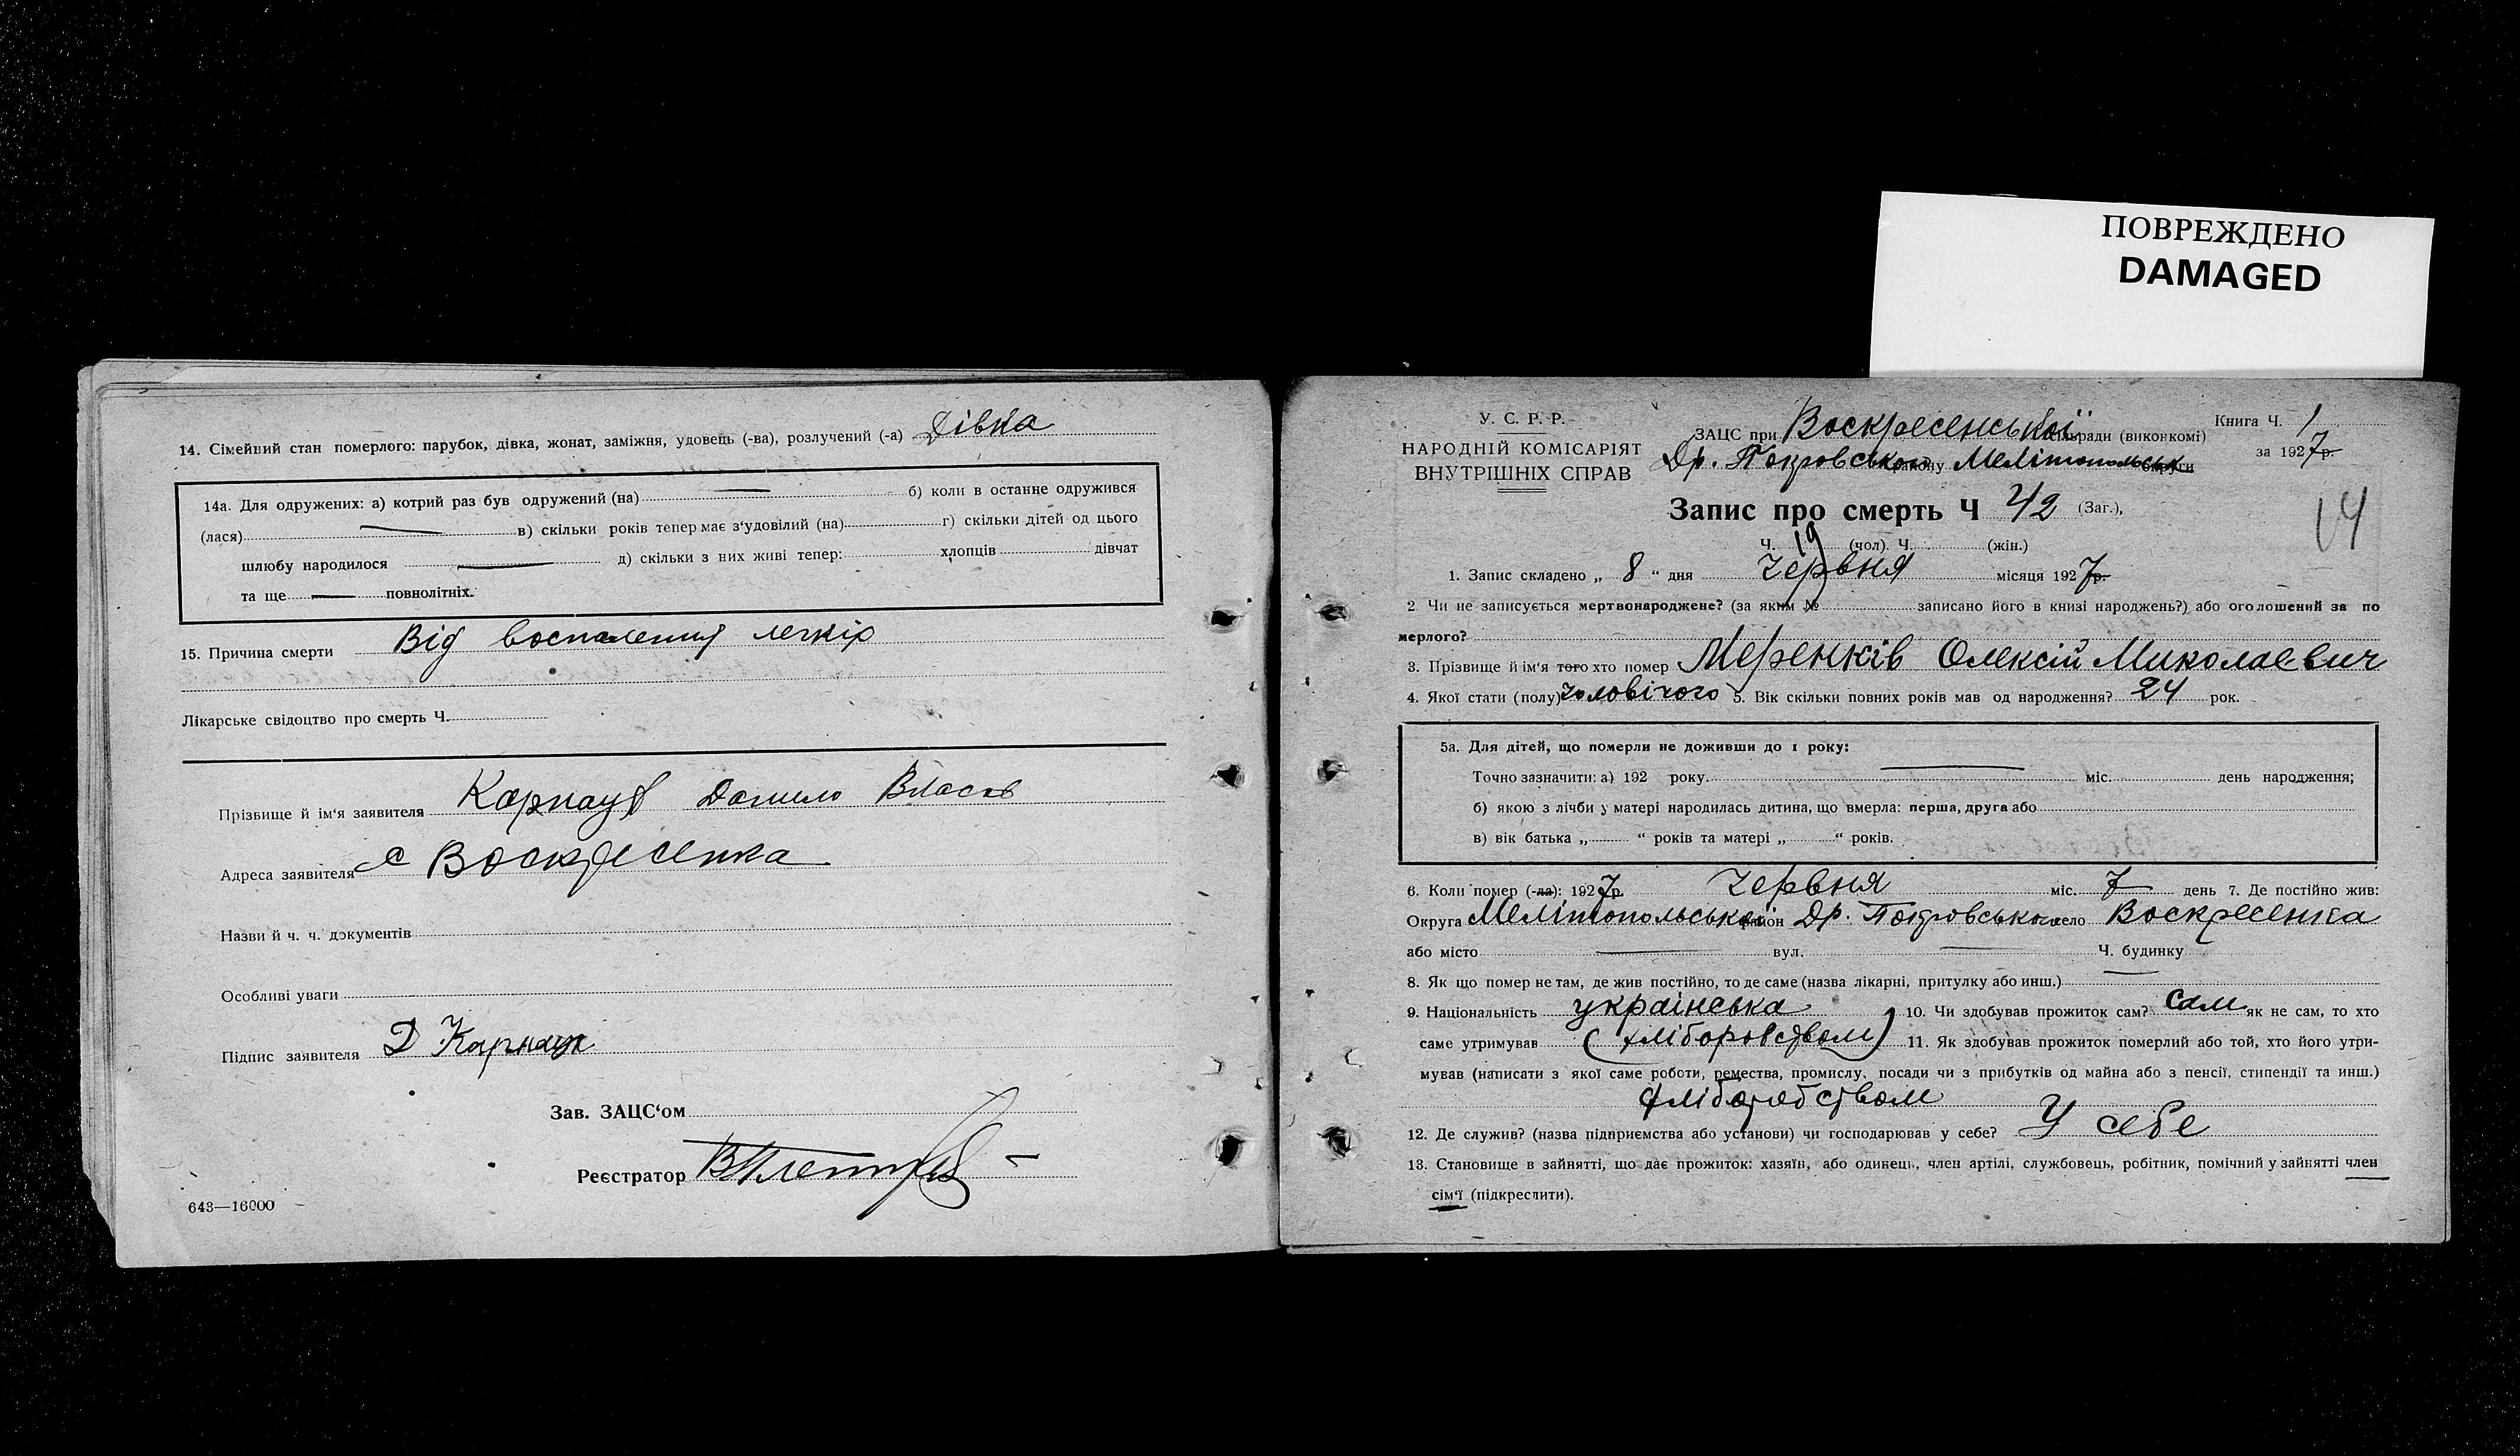 ПОВРЕЖДЕНО
DAMAGED
14. Сімейний стан померлого: парубок, дівка, жонат, заміжня, удовець (-ва), розлучений (-а) Дівка
14а. Для одружених: а) котрий раз був одружений (на) — б) коли в останнє одружився
(лася) — в) скільки років тепер має з'удовілий (на) г) скільки дітей од цього
шлюбу народилося — д) скільки з них живі тепер: хлопців дівчат
та ще — повнолітніх.
15. Причина смерти Від воспаления легкіх
Лікарське свідоцтво про смерть Ч.
Прізвище й ім'я заявителя Карнаух Данило Власов
Адреса заявителя с Воскресенка
Назви й ч. ч. документів
Особливі уваги
Підпис заявителя Д Карнаух
Зав. ЗАЦС'ом
Реєстратор
643—16000
У. С. Р. Р.
НАРОДНІЙ КОМІСАРІЯТ
ВНУТРІШНІХ СПРАВ
ЗАЦС при Воскресенської сільради (виконкомі)
Др. Покровського району Мелітопольськ округи
Книга Ч. 1
за 1927р.
14
Запис про смерть Ч 42 (Заг.),
Ч. 19 (чол). Ч. (жін.)
1. Запис складено „ 8 “ дня Червня місяця 1927р.
2 Чи не записується мертвонароджене? (за яким № записано його в книзі народжень?) або оголошений за по
мерлого?
3. Прізвище й ім'я того хто помер Меренків Олексій Миколаєвич
4. Якої стати (полу) чоловічого 5. Вік скільки повних років мав од народження? 24 рок.
5а. Для дітей, що померли не доживши до 1 року:
Точно зазначити: а) 192 року. — міс. день народження;
б) якою з лічби у матері народилась дитина, що вмерла: перша, друга або
в) вік батька „ “ років та матері „ “ років.
6. Коли помер (-ла): 1927р. Червня міс. 7 день 7. Де постійно жив:
Округа Мелітопольської район Др. Покровського село Воскресенка
або місто — вул. — Ч. будинку —
8. Як що помер не там, де жив постійно, то де саме (назва лікарні, притулку або инш.)
9. Національність українська 10. Чи здобував прожиток сам? Сам як не сам, то хто
саме утримував (хліборобством) 11. Як здобував прожиток померлий або той, хто його утри-
мував (написати з якої саме роботи, ремества, промислу, посади чи з прибутків од майна або з пенсії, стипендії та инш.)
хліборобством
12. Де служив? (назва підприємства або установи) чи господарював у себе? У себе
13. Становище в зайнятті, що дає прожиток: хазяїн, або одинець, член артілі, службовець, робітник, помічний у зайнятті член
сім'ї (підкреслити).